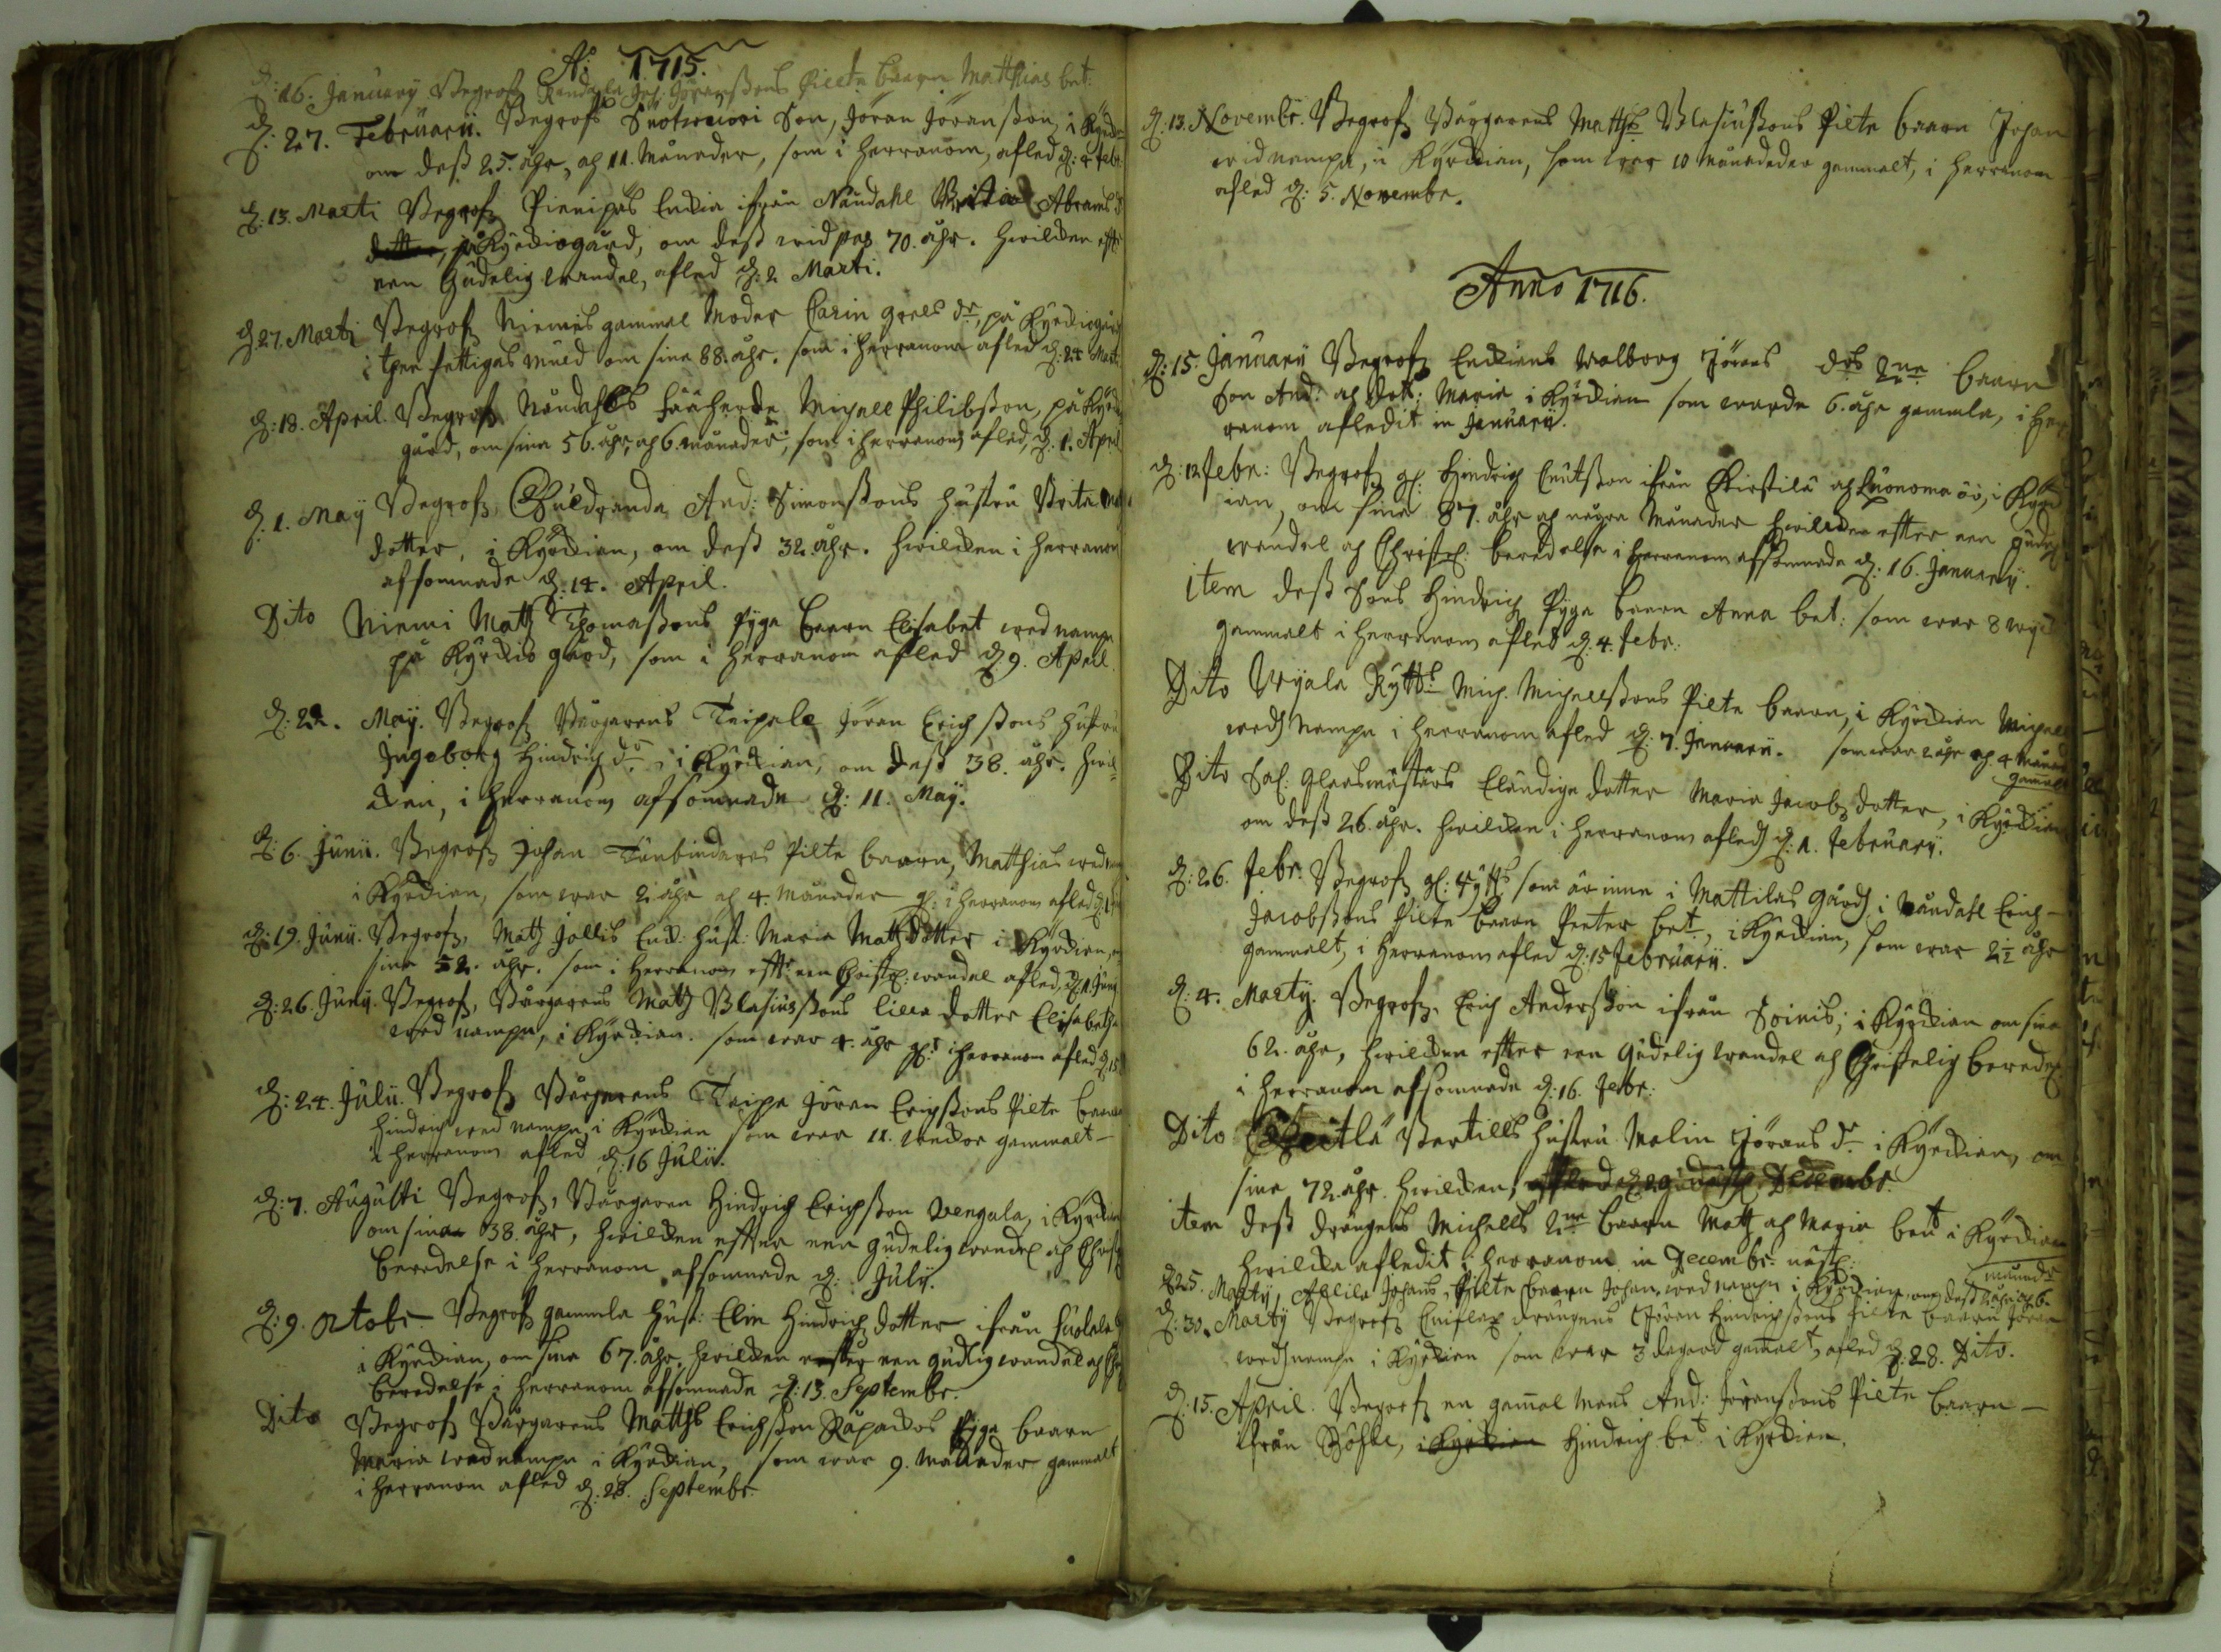 Aö 1715.
d: 16. January Begrofz Randala Joh. Jöranßons Pilta baarn Matthias bet:
d. 27. Februarii. Begrofz Son, Jöran Jöranßon, i Kyrckian
om deß 25. åhr, och 11. Månader, som i Herranom, afled d: 4 febr
d: 13. Marti Begrofz Pienipäs Enckia ifrån Nåndahl Brita Abrams
på Kyrckiogård, om deß wid pas 70. åhr. hwilcken effter
een Gudelig wandel, afled d: 2 Marti.
d. 27. Marti Begrofz Niemis gammal Moder Carin Grels dr, på Kyrckiogård
i then fattigas muld om sina 88. åhr. som i herranom afled d: 24 Marti
d: 18. April. Begrofz Nåndahls fääherde Michell Philibßon, på Kyrckio
gård, om sina 56. åhr, och 6. månader, som i herranom afled, d. 1. April
d. 1. May Begrofz And: Simonßons hustru Brita
dotter, i Kyrckian, om deß 32. åhr. hwilcken i herranom
afsomnade d. 14. April.
Dito Niemi Matz Thomaßons Pyga baarn Elisabet wed nampn
på Kyrckio gård, som i herranom afled d. 9. April.
d: 22. May. Begrofz Borgarens Teipele Jöran Erichßons hustru
Ingeborg Hindrich dr, i Kyrckian, om deß 38. åhr. hwil=
cken, i herranom afsomnade d: 11. May.
d: 6. Junii. Begrofz Johan Tunbindares Pilte baarn, Matthias wed nampn
i Kyrckian, som war 2. åhr och 4. Månader gl: i herranom afled
d: 19. Junii. Begrofz, Matz Jollis Enck: hust: Maria Matzdotter i Kyrckian, om
sina 52. åhr. som i herranom effter een Christel: wandel afled, d. 1. Junij
d: 26. Junij. Begrofz, Borgarens Matz Blasiusßons lilla dotter Elisabetha
wed nampn, i Kyrckian. som war 4. åhr gl: i herranom afled d. 15
d: 24. Julii. Begrofz Borgarens Teipa Jöran Erichßons Pilte baarn
Hindrich wed nampn i Kyrckian som war 11. weckor gammalt
i herranom afled d: 16 Julii.
d: 7. Augusti Begrofz, Borgaren Hindrich Erichßon Wengala, i Kyrckian
om sina 38. åhr, hwilcken effter een gudelig wandel och Christ
beredelse i herranom afsomnade d: Julij.
d: 9. Octobr Begrofz gammla hust: Elin Hindrich dotter ifrån
i Kyrckian, om sina 67. åhr. hwilcken effter een gudlig wandel och Chr
beredelse i herranom afsomnade d: 13. Septembr.
Dito Begrofz Borgarens Matths Erichßon Råpackos Pyga baarn
Maria wed nampn i Kyrckian, som war 9. Månader gammalt
i herranom afled d: 28. Septembr.
2
d: 13. Novembr. Begrofz Borgarens Matths Blasiusßons Pilte baarn Johan
wid nampn, i Kyrckian, som war 10 Månadeder gammalt, i herranom
afled d: 5. Novembr.
Anno 1716.
d: 15. January Begrofz Enckians Walborg Jörans drs 2ne baarn
Son And: och dott: Maria i Kyrckian som warde 6. åhr gamla, i her
ranom afledit in Januarii.
d: 12 febr: Begrofz gl: Hindrich Cnutßon ifrån Kirstilä och Luonoma öö, i Kyrck
ian, om sina 87. åhr och några Månader hwilcken effter een gudel:
wandel och Christel: beredelse i herranom afsomnade d: 16. January.
item deß Sons Hindrich Pyga baarn Anna bet: som war 8 wyckor
gammalt i herranom afled d: 4. febr.
Dito Wyala Rytts Mich. Michellßons Pilte baarn, i Kyrckian Michel
wedh nampn i herranom afled d: 7. Januarii. som war 2 åhr och 4 månad
gamalt
Dito Sal: Glaasmästars Eländige dotter Maria Jacobz dotter, i Kyrckian
om deß 26. åhr. hwilcken i herranom afledh d. 1. february.
d: 26. febr. Begrofz gl: Rytts som är inne i Mattilas gårdh i Nåndahl Erich
Jacobßons Pilte baarn Petter bet, i Kyrckian, som war 2½ åhr
gammalt, i herranom afled d: 15 february.
d: 4. Marty. Begrofz. Erich Anderßon ifrån Soinis, i Kyrckian om sina
62. åhr, hwilcken effter een Gudelig wandel och Christelig beredel
i herranom afsomnade d: 16. febr:
Dito Bertills hustru Malin Jörans dr i Kyrckian, om
sina 72. åhr. hwilcken, Decembr.
item deß drängens Michells 2ne baarn Matz och Maria bet i Kyrckian
hwilcka afledit i herranom in Decembr. nästl:
d 25. Marty, Allila Johans Pilte baarn Johan wed nampn i Kyrckian, om deß 2 åhr och 6. månader
d: 30. Marty Begrofz drängens Jöran Hindrichßons Pilte baarn Jöran
wedh nampn i Kyrckian som war 3 dagar gamalt, afled d. 28. Dito.
d: 15. April. Begrofz en gamal mans And: Jöranßons Pilte baarn
ifrån i Kyrckian Hindrich bet i Kyrckian.